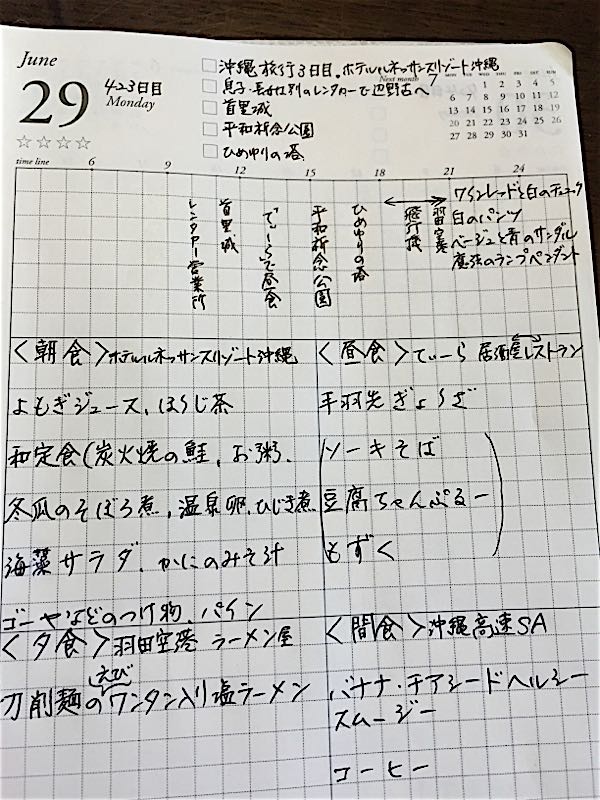 June
29
423日目
Monday
☆☆☆☆
沖縄旅行3日目。ホテルルネッサンスリゾート沖縄
息子・長女は別のレンタカーで辺野古へ
首里城
平和祈念公園
ひめゆりの塔
Next month
MON TUE WED THU FRI SAT SUN
1 2 3 4 5
6 7 8 9 10 11 12
13 14 15 16 17 18 19
20 21 22 23 24 25 26
27 28 29 30 31
time line 6 9 12 15 18 21 24
レンタカー営業所
首里城
でぃーらで昼食
平和祈念公園
ひめゆりの塔
飛行機
羽田空港
ワインレッドと白のチュニック
白のパンツ
ベージュと青のサンダル
魔法のランプペンダント
〈朝食〉ホテルルネッサンスリゾート沖縄
よもぎジュース、ほうじ茶
和定食(炭火焼の鮭、お粥、
冬瓜のそぼろ煮、温泉卵、ひじき煮
海藻サラダ、かにのみそ汁
ゴーヤなどのつけ物、パイン
〈昼食〉てぃーら 居酒屋レストラン
手羽先ぎょうざ
ソーキそば
豆腐ちゃんぷるー
もずく
〈夕食〉羽田空港 ラーメン屋
刀削麺のえびワンタン入り塩ラーメン
〈間食〉沖縄高速SA
バナナ・チアシードヘルシー
スムージー
コーヒー